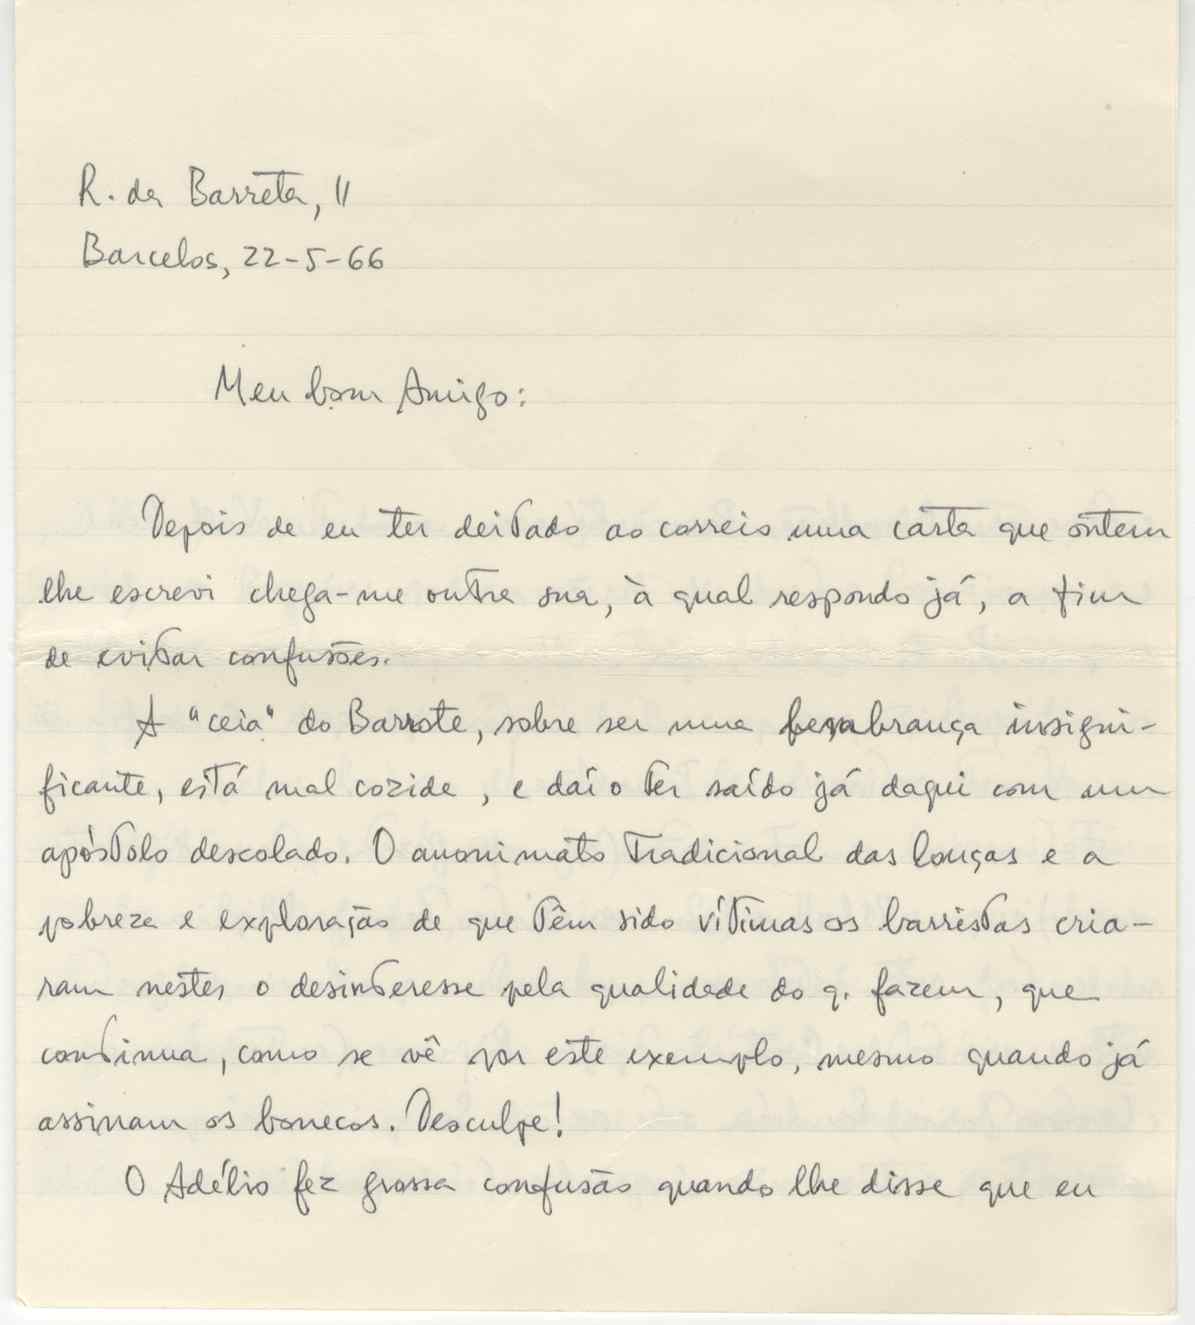 R. da Barreta, 11
Barcelos, 22-5-66
Meu bom Amigo:
Depois de eu ter deitado ao correio uma carta que ontem
lhe escrevi chega-me outra sua, à qual respondo já, a fim
de evitar confusões.
A "ceia" do Barrote, sobre ser uma lembrança insigni-
ficante, está mal cozida, e daí o ter saído já daqui com um
apóstolo descolado. O anonimato tradicional das louças e a
pobreza e exploração de que têm sido vítimas os barristas cria-
ram nestes o desinteresse pela qualidade do q. fazem, que
continua, como se vê por este exemplo, mesmo quando já
assinam os bonecos. Desculpe!
O Adélio fez grossa confusão quando lhe disse que eu